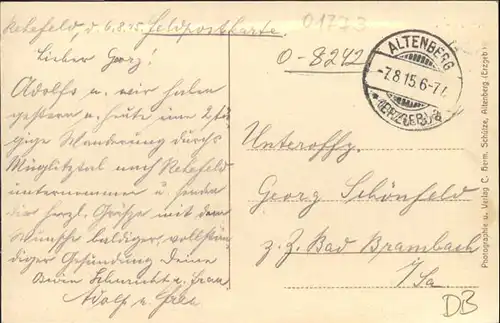 Rehefeld, d. 6.8.15. Feldpostkarte.
01773
O-8242
Lieber Georg!
Adolfs u. wir haben
gestern u. heute eine 2tä-
gige Wanderung durchs
Müglitztal nach Rehefeld
unternommen u. senden
dir herzl. Grüße mit dem
Wunsche baldiger, vollstän-
diger Gesundung Deine
Schmidt u. Frau
Adolf u. Frau
ALTENBERG
-7.8.15.6-7
* (ERZGEB.)
Unteroffz.
Georg Schönfeld
z. Z. Bad Brambach
i/Sa
DB
Photographie u. Verlag C. Herm. Schütze, Altenberg (Erzgeb.)